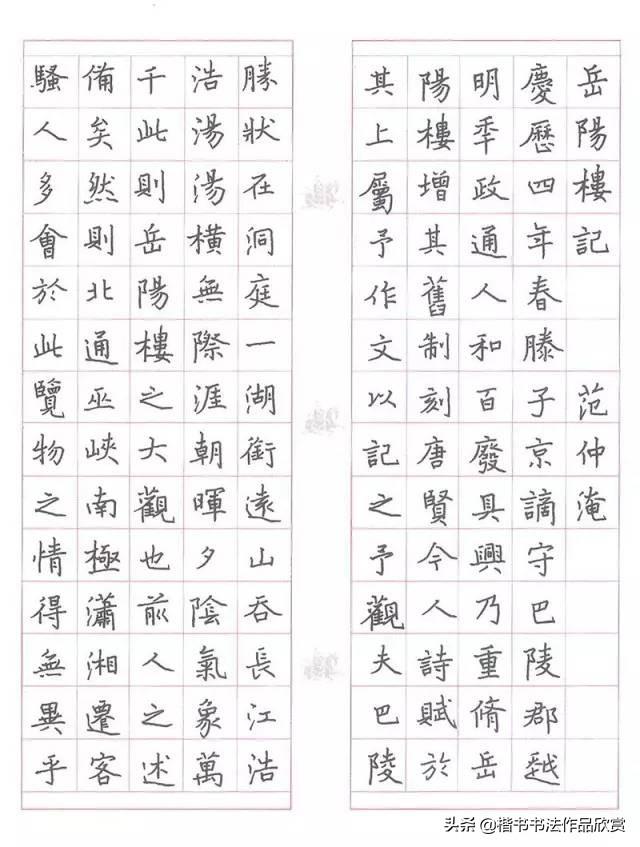 岳陽樓記 范仲淹
慶歷四年春滕子京謫守巴陵郡越
明秊政通人和百廢具興乃重脩岳
陽樓增其舊制刻唐賢今人詩賦於
其上屬予作文以記之予觀夫巴陵
勝狀在洞庭一湖銜遠山吞長江浩
浩湯湯橫無際涯朝暉夕陰氣象萬
千此則岳陽樓之大觀也前人之述
備矣然則北通巫峽南極瀟湘遷客
騷人多會於此覽物之情得無異乎
头条 @楷书书法作品欣赏